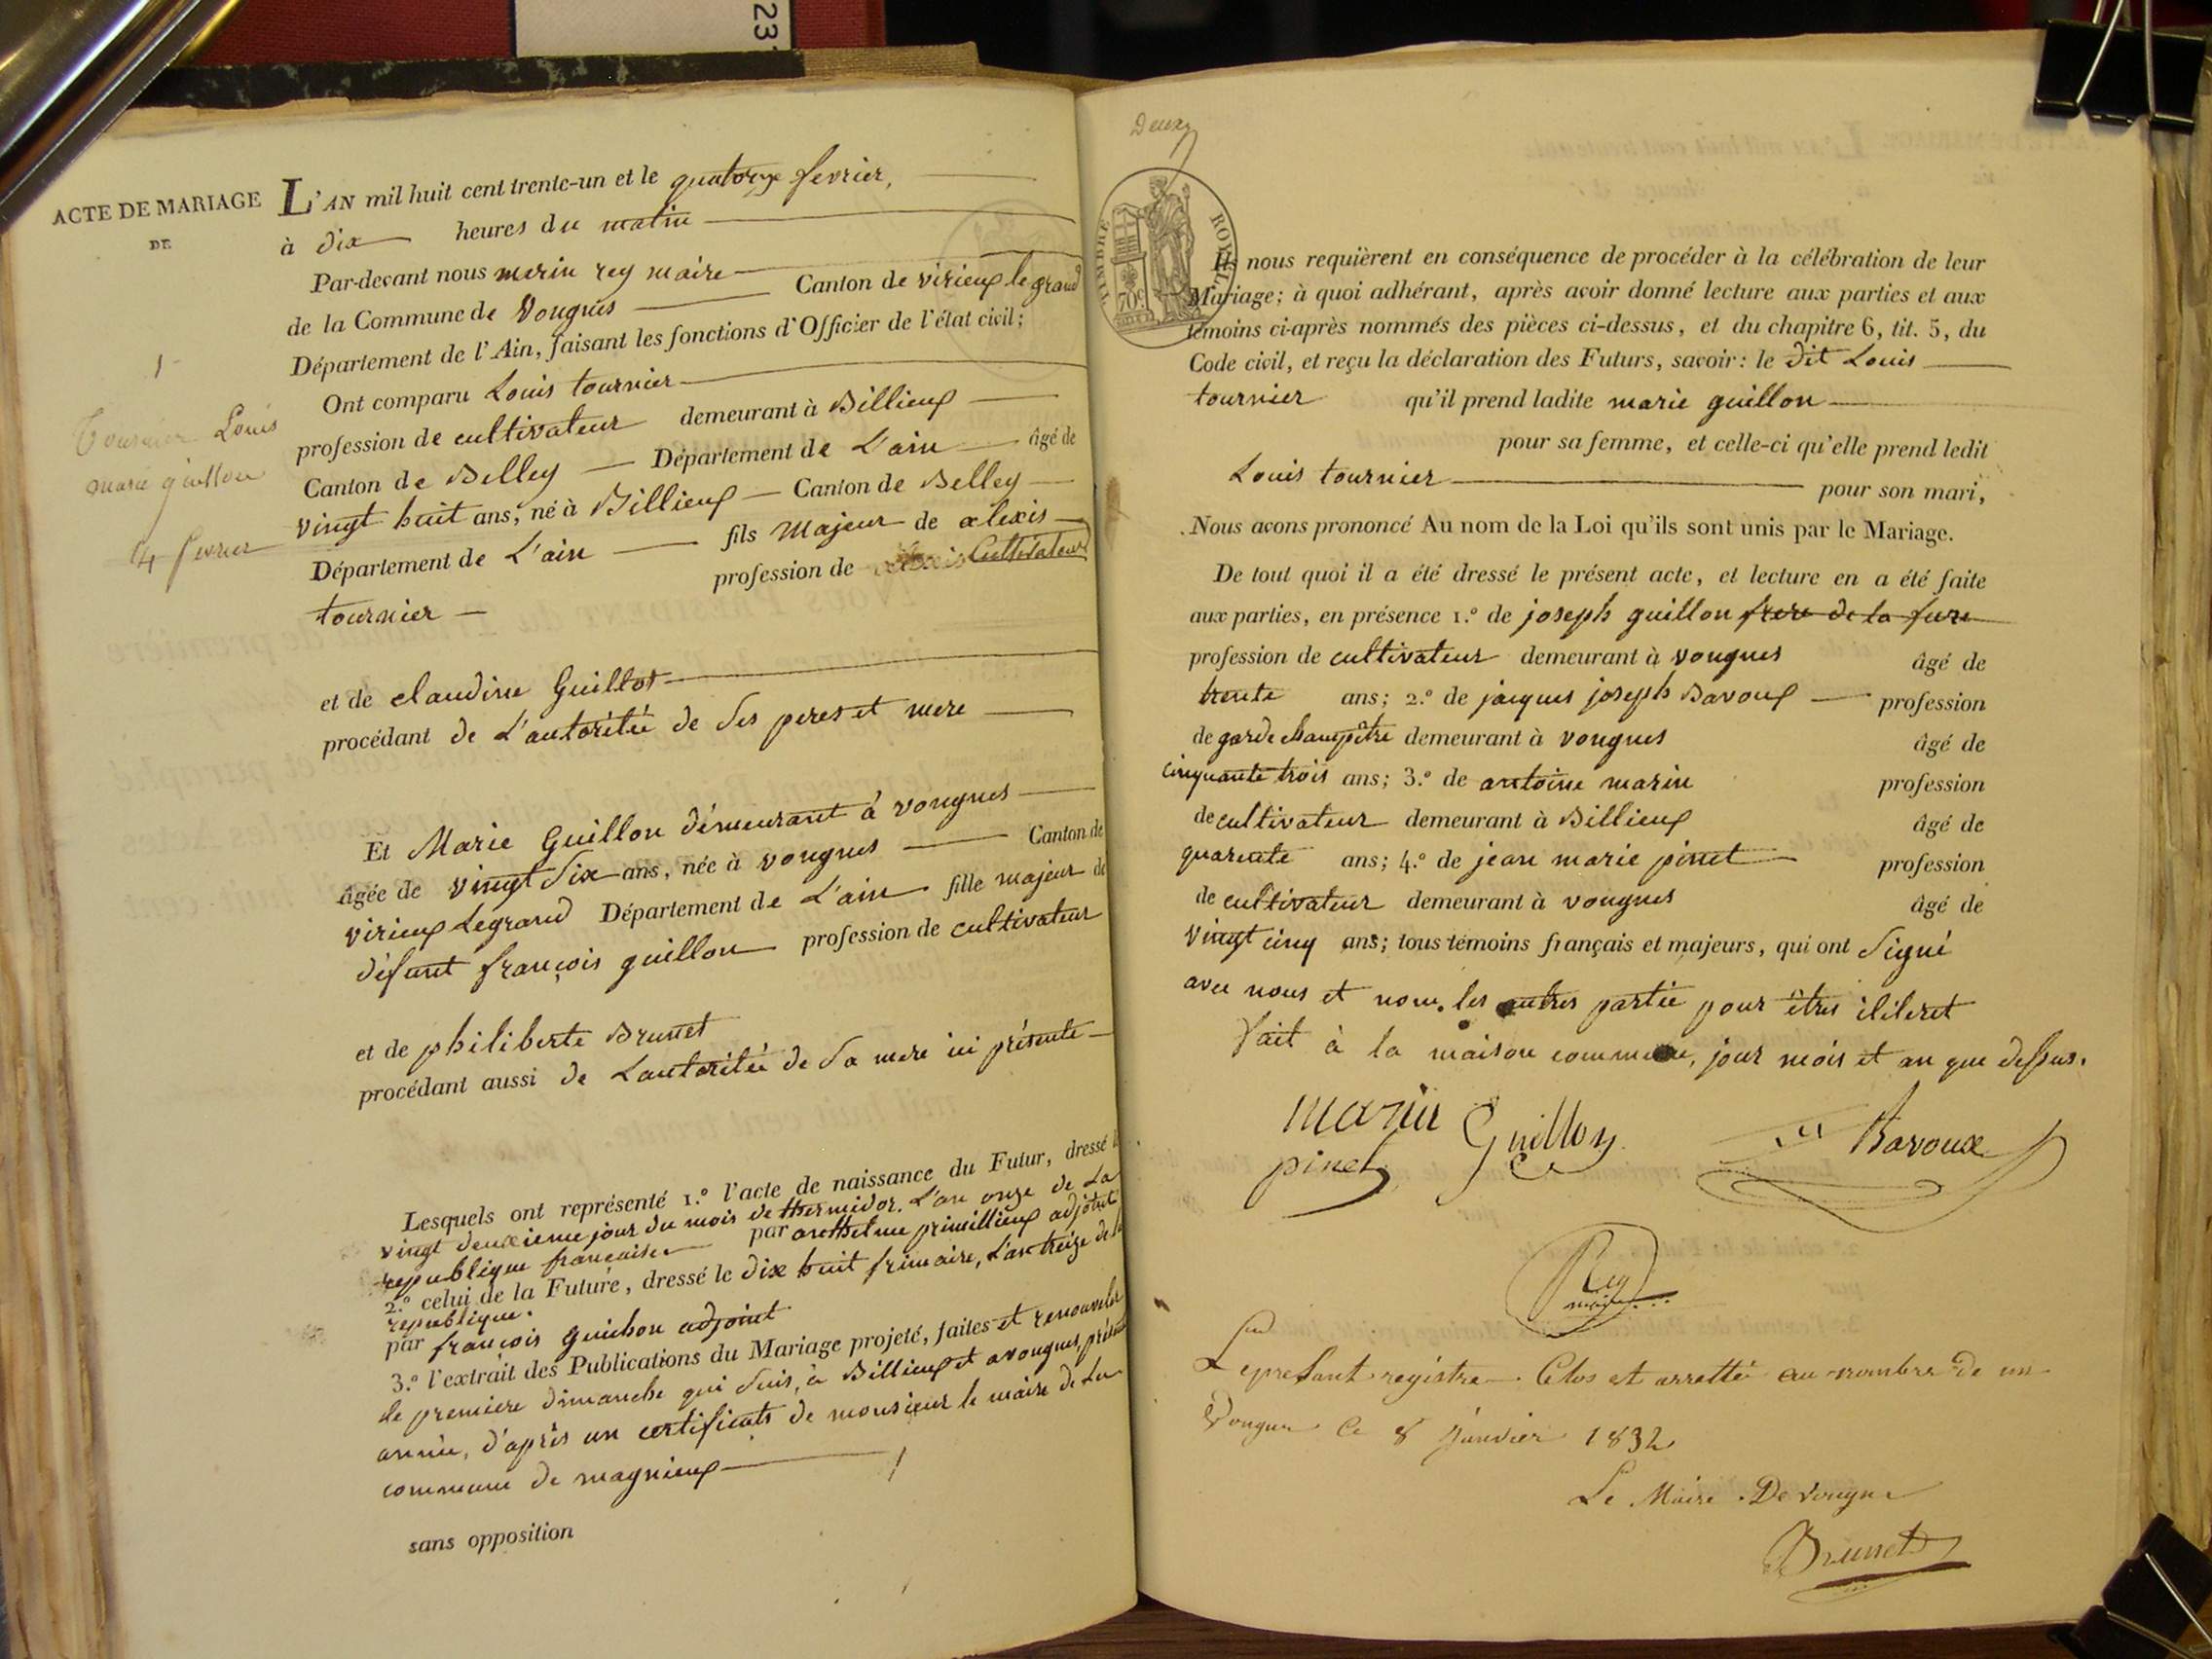 23
ACTE DE MARIAGE
DE
1
Tournier Louis
marie guillon
14 fevrier
L'AN mil huit cent trente-un et le quatorze fevrier,
à dix heures du matin
Par-devant nous merin rey maire
de la Commune de Vongnes Canton de virieux le grand
Département de l'Ain, faisant les fonctions d'Officier de l'état civil;
Ont comparu Louis tournier
profession de cultivateur demeurant à Billieux
Canton de Belley Département de L'ain âgé de
vingt huit ans; né à Billieux Canton de Belley
Département de L'ain fils Majeur de alexis
tournier profession de Cultivateur
et de claudine Guillot
procédant de L'autoritée de ses peres et mere
Et Marie Guillon démeurant à vongnes
âgée de vingt six ans, née à vongnes Canton de
virieux Legrand Département de L'ain fille majeur de
défunt françois guillon profession de cultivateur
et de philiberte Brunet
procédant aussi de Lautoritée de sa mere ici présente
Lesquels ont représenté 1.º l'acte de naissance du Futur, dressé le
vingt deuxieme jour du mois de thermidor. L'an onze de La
republique française par anthelme primillieux adjoint
2.º celui de la Future, dressé le dix huit frimaire, L'an treize de la
republique.
par françois Guichon adjoint
3.º l'extrait des Publications du Mariage projeté, faites et renouveler
le premiere dimanche qui suis, à Billieux et avongnes, présente
année, d'après un certificats de monsieur le maire de La
commune de magnieux
sans opposition
Deux
TIMBRE ROYAL
70c
Ils nous requièrent en conséquence de procéder à la célébration de leur
Mariage; à quoi adhérant, après avoir donné lecture aux parties et aux
témoins ci-après nommés des pièces ci-dessus, et du chapitre 6, tit. 5, du
Code civil, et reçu la déclaration des Futurs, savoir: le dit Louis
tournier qu'il prend ladite marie guillon
pour sa femme, et celle-ci qu'elle prend ledit
Louis tournier pour son mari,
Nous avons prononcé Au nom de la Loi qu'ils sont unis par le Mariage.
De tout quoi il a été dressé le présent acte, et lecture en a été faite
aux parties, en présence 1.º de joseph guillon frere de la fure
profession de cultivateur demeurant à vongnes âgé de
trente ans; 2.º de jacques joseph Bavoux profession
de garde champêtre demeurant à vongnes âgé de
cinquante trois ans; 3.º de antoine marin profession
de cultivateur demeurant à Billieux âgé de
quarente ans; 4.º de jean marie pinet profession
de cultivateur demeurant à vongnes âgé de
vingt cinq ans; tous témoins français et majeurs, qui ont signé
avec nous et non. les autres partie pour êtres ileleret
fait à la maison commune, jour mois et an que dessus.
marin Guillon Bavoux
pinet
Rey
maire
Lepresant registre Clos et arretté au nombre de un
Vongne Ce 8 Janvier 1832
Le Maire De Vongne
Brunet